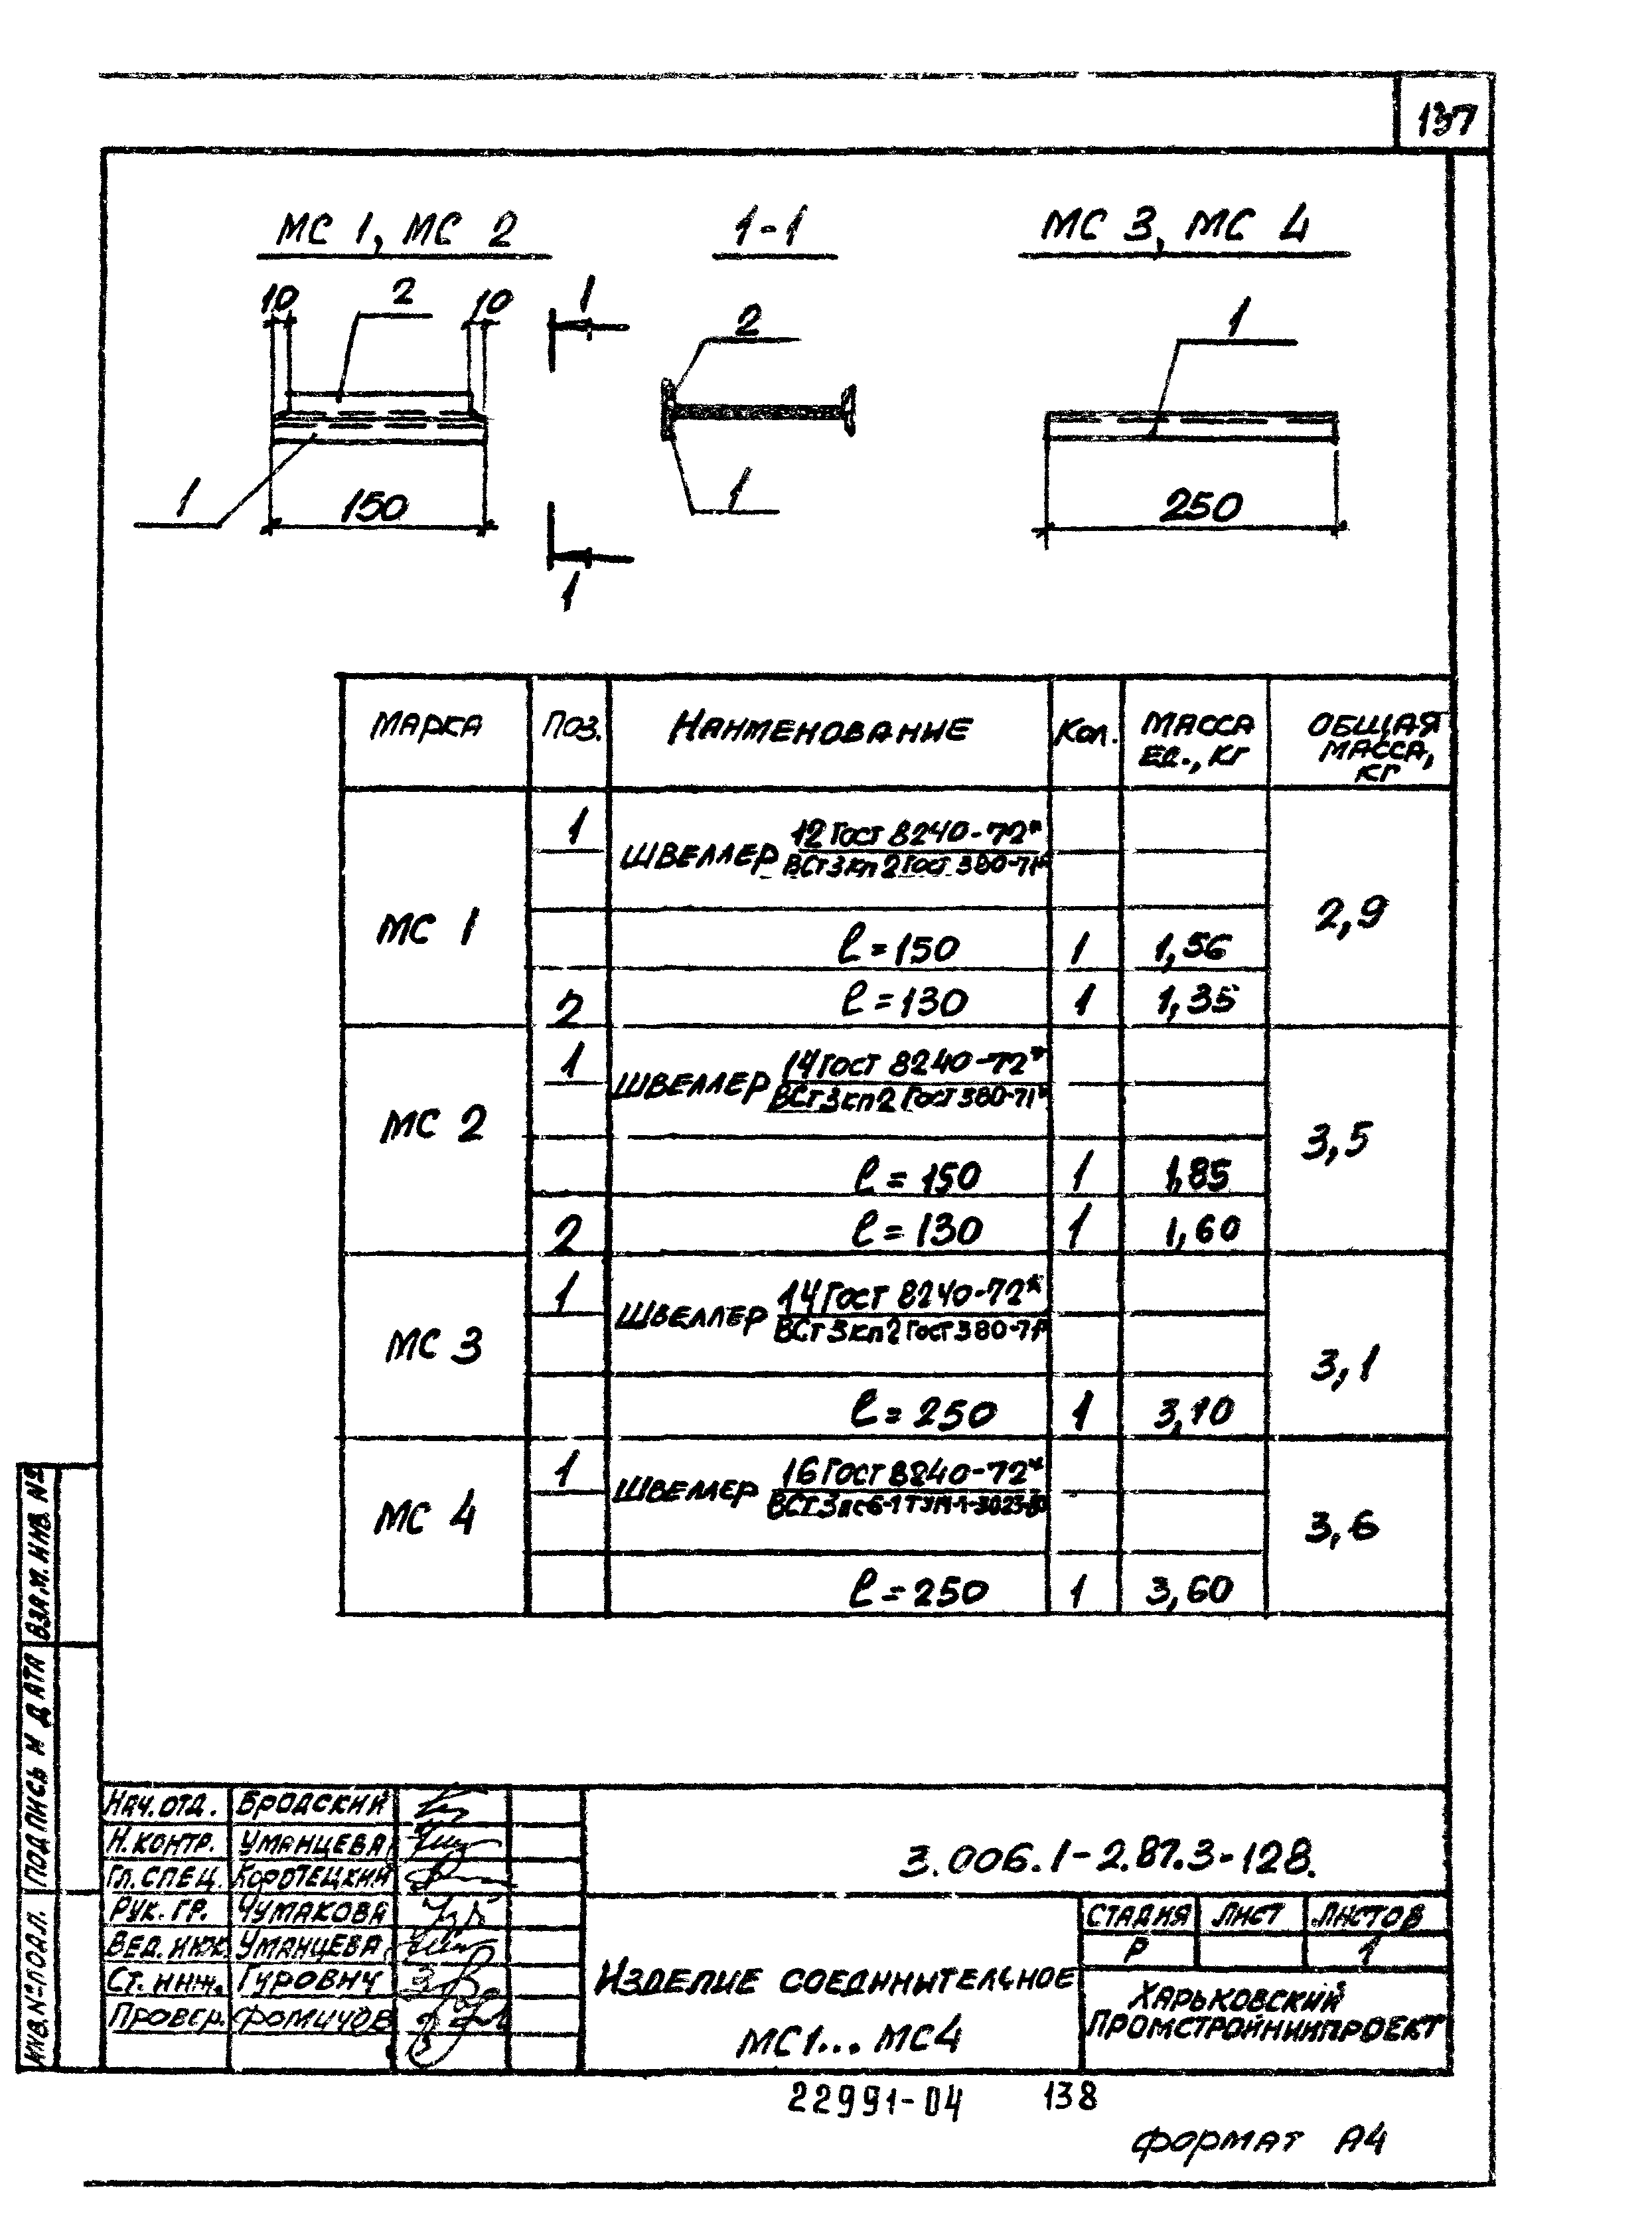 137
МС 1, МС 2
1-1
МС 3, МС 4
10
2
10
1
2
1
1
150
1
250
1
Марка
Поз.
Наименование
Кол.
Масса ед., кг
Общая масса, кг
МС 1
1
Швеллер 12 Гост 8240-72*
ВСт3кп2 Гост 380-71*
l = 150
1
1,56
2
l = 130
1
1,35
2,9
МС 2
1
Швеллер 14 Гост 8240-72*
ВСт3кп2 Гост 380-71*
l = 150
1
1,85
2
l = 130
1
1,60
3,5
МС 3
1
Швеллер 14 Гост 8240-72*
ВСт3кп2 Гост 380-71*
l = 250
1
3,10
3,1
МС 4
1
Швеллер 16 Гост 8240-72*
ВСт3пс6-1 ТУ14-1-3023-80
l = 250
1
3,60
3,6
Взам. инв. №
Подпись и дата
Инв. № подл.
Нач. отд. Бродский
Н. контр. Уманцева
Гл. спец. Коротецкий
Рук. гр. Чумакова
Вед. инж. Уманцева
Ст. инж. Гурович
Провер. Фомичов
3.006.1-2.87.3-128.
Изделие соединительное
МС1... МС4
Стадия Лист Листов
Р 1
Харьковский
Промстройниипроект
22991-04 138
формат А4